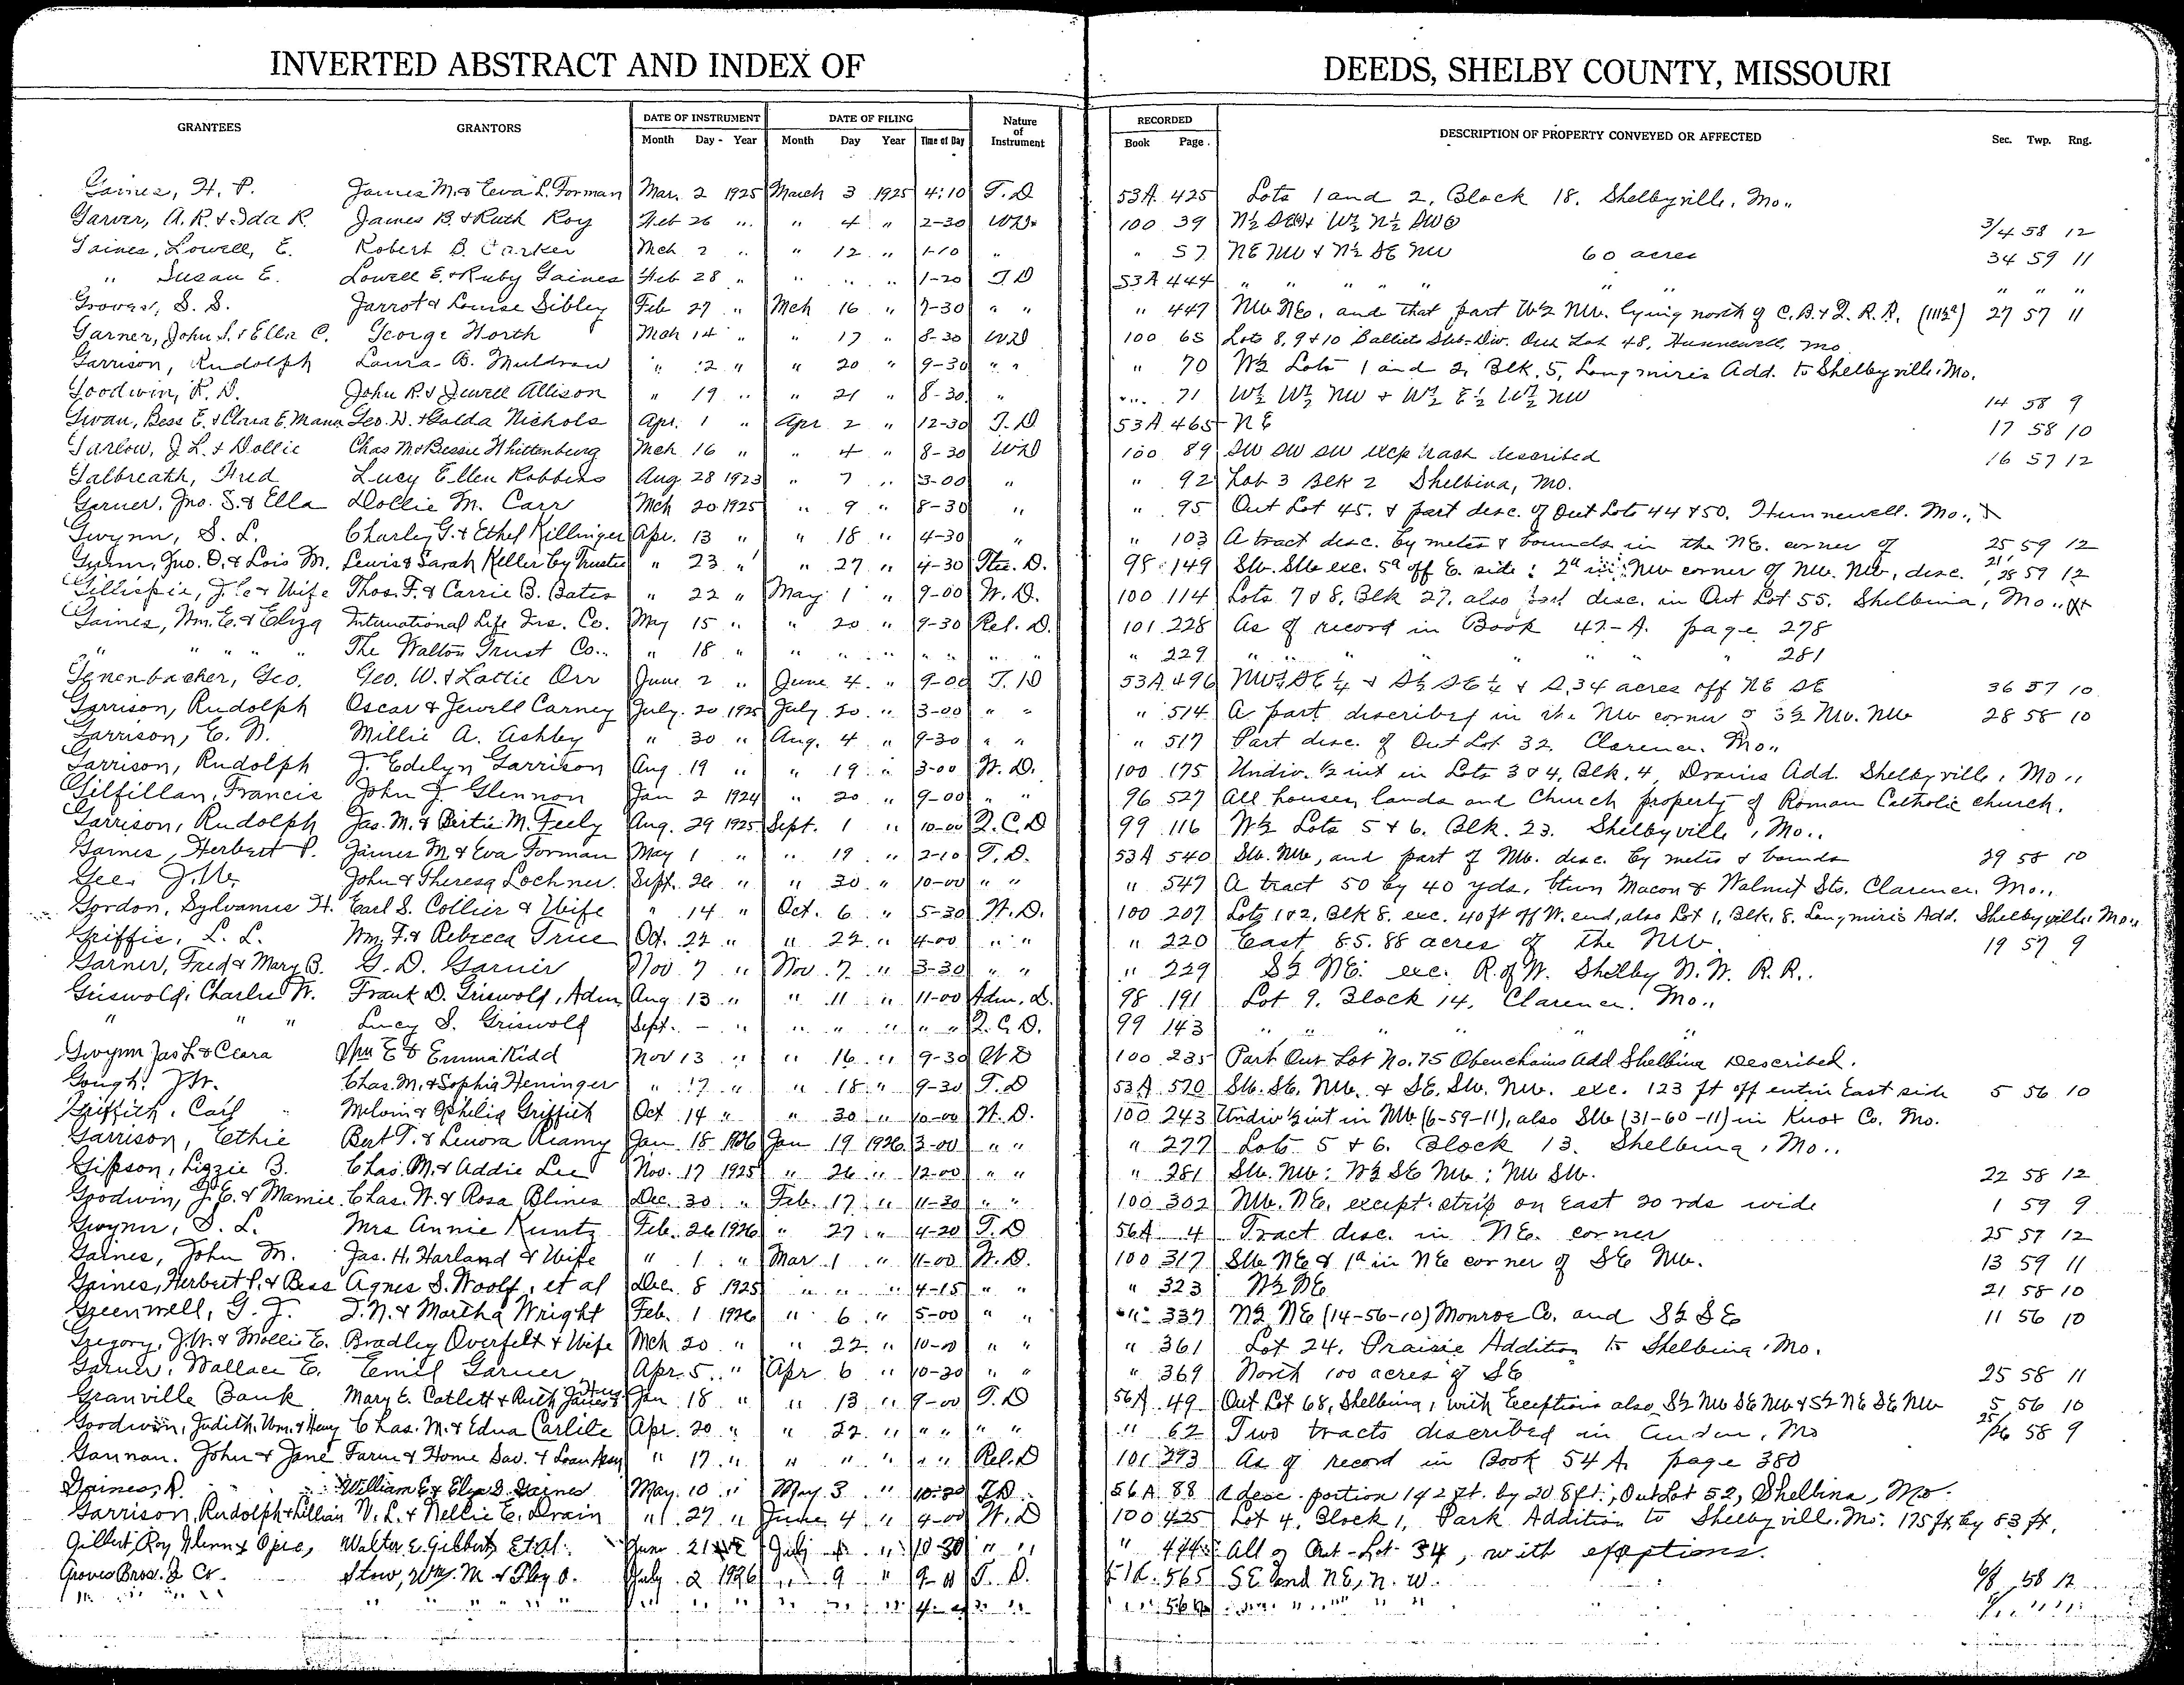 INVERTED ABSTRACT AND INDEX OF DEEDS, SHELBY COUNTY, MISSOURI
GRANTEES GRANTORS DATE OF INSTRUMENT DATE OF FILING Nature of Instrument RECORDED DESCRIPTION OF PROPERTY CONVEYED OR AFFECTED Sec. Twp. Rng.
Month Day - Year Month Day Year Time of Day Book Page.
Gaines, H. P. James M. & Eeva L. Forman Mar. 2 1925 March 3 1925 4:10 T. D 53A 425 Lots 1 and 2, Block 18, Shelbyville, Mo..
Garver, A. R. & Ida R. James B. & Ruth Roy Feb 26 " " 4 " 2-30 WD. 100 39 3/4 58 12
Gaines, Lowell, E. Robert B. Carker Mch 2 " " 12 " 1-10 " " 57 NE NW & N½ SE NW 60 acres 34 59 11
" Susan E. Lowell E. & Ruby Gaines Feb 28 " " " " 1-20 T. D 53A 444 " " " " " " " " " "
Groves, S. S. Jarrot & Louise Sibley Feb 27 " Mch 16 " 7-30 " " " 447 NW NE, and that part W½ NW. lying north of C. B. & Q. R. R. (111½a) 27 57 11
Garner, John S. & Ella C. George North Mch 14 " " 17 " 8-30 WD 100 65 Lots 8, 9 & 10 Balliets Sub-Div. Out Lot 48, Hunnewell, Mo
Garrison, Rudolph Laura B. Muldrow " 12 " " 20 " 9-30 " " " 70 W½ Lots 1 and 2, Blk. 5, Longmires Add. to Shelbyville, Mo.
Goodwin, R. D. John R. & Jewell Allison " 19 " " 21 " 8-30 " " 71 W½ W½ NW & W½ E½ W½ NW 14 58 9
Gwan, Bess E. & Clara E. Geo. D. & Golda Nichols Apr. 1 " Apr 2 " 12-30 T. D 53A 465 NE 17 58 10
Garlow, J. L. & Dollie Chas M & Bessie Whittenburg Mch 16 " " 4 " 8-30 WD 100 89 SW SW SW excp tract described 16 57 12
Galbreath, Fred Lucy Ellen Robbins Aug 28 1923 " 7 " 3-00 " " 92 Lot 3 Blk 2 Shelbina, Mo.
Garner, Jno. S. & Ella Dollie M. Carr Mch 20 1925 " 9 " 8-30 " " 95 Out Lot 45, & part desc. of Out Lots 44 & 50, Hunnewell. Mo., X
Gwynn, S. L. Charley G. & Ethel Killinger Apr. 13 " " 18 " 4-30 " " 103 A tract desc. by metes & bounds in the NE. corner of 25 59 12
Gunn, Jno. O. & Lois M. Lewis & Sarah Keller by Trustee " 23 " " 27 " 4-30 Tte. D. 98 149 SW. SW exc. 5a off E. side: 2a in NW corner of NW. NW, desc. 21, 28 59 12
Gillispie, J. C. & Wife Thos. F. & Carrie B. Bates " 22 " May 1 " 9-00 W. D. 100 114 Lots 7 & 8, Blk 27, also part desc. in Out Lot 55. Shelbina, Mo..
Gaines, Wm. E. & Eliza International Life Ins. Co. May 15 " " 20 " 9-30 Rel. D. 101 228 As of record in Book 47-A. page 278
" " " " The Walton Trust Co.. " 18 " " " " " " " " 229 " " " " " " 281
Genenbacher, Geo. Geo. W. & Lottie Orr June 2 " June 4 " 9-00 T. D 53A 496 NW¼ SE¼ & S½ SE¼ & S. 34 acres off NE SE 36 57 10
Garrison, Rudolph Oscar & Jewell Carney July 20 1925 July 20 " 3-00 " " " 514 A part described in the NW corner of S½ NW. NW 28 58 10
Garrison, E. N. Millie A. Ashby " 30 " Aug. 4 " 9-30 " " " 517 Part desc. of Out Lot 32. Clarence. Mo..
Garrison, Rudolph J. Edelyn Garrison Aug 19 " " 19 " 3-00 W. D. 100 175 Undiv. ½ int in Lots 3 & 4, Blk. 4, Drains Add. Shelbyville, Mo..
Gilfillan, Francis John J. Glennon Jan 2 1924 " 20 " 9-00 " " 96 527 All houses, lands and Church property of Roman Catholic church.
Garrison, Rudolph Jas. M. & Birtie M. Feely Aug. 29 1925 Sept. 1 " 10-00 Q. C. D 99 116 W½ Lots 5 & 6. Blk. 23. Shelbyville, Mo..
Gaines, Herbert P. James M. & Eva Forman May 1 " " 19 " 2-10 T. D. 53A 540 SW. NW, and part of NW. desc. by metes & bounds 29 58 10
Gee, J. W. John & Theresa Lochner. Sept. 26 " " 30 " 10-00 " " " 547 A tract 50 by 40 yds, btwn Macon & Walnut Sts. Clarence. Mo..
Gordon, Sylvanus H. Earl S. Collier & Wife " 14 " Oct. 6 " 5-30 W. D. 100 207 Lots 1 & 2, Blk 8. exc. 40 ft off W. end, also Lot 1, Blk. 8. Longmires Add. Shelbyville. Mo..
Griffie, L. L. Wm. F. & Rebecca True Oct. 22 " " 22 " 4-00 " " " 220 East 85.88 acres of the NW. 19 57 9
Garner, Fred & Mary B. G. D. Garner Nov. 7 " Nov. 7 " 3-30 " " " 229 S½ NE. exc. R. of W. Shelby N. W. R. R..
Griswold, Charlie W. Frank D. Griswold, Adm Aug 13 " " 11 " 11-00 Adm. D. 98 191 Lot 9. Block 14, Clarence. Mo..
" " " Lucy S. Griswold Sept. - " " " " " " Q. C. D. 99 143 " " " " " "
Gwynn Jas L & Clara Wm E & Emma Kidd Nov 13 " " 16 " 9-30 W D 100 235 Part Out Lot No. 75 Obenchains Add Shelbina Described.
Gough, J W. Chas. M. & Sophia Heninger " 17 " " 18 " 9-30 T. D 53A 570 SW. SE. NW. & SE. SW. NW. exc. 123 ft off entire East side 5 56 10
Griffith, Carl Melvin & Ophelia Griffith Oct 14 " " 30 " 10-00 W. D. 100 243 Undiv ½ int in NW (6-59-11), also SW (31-60-11) in Knox Co. Mo.
Garrison, Ethie Bert T. & Lenora Reamy Jan 18 1926 Jan 19 1926 3-00 " " " 277 Lots 5 & 6. Block 13. Shelbina, Mo..
Gipson, Lizzie B. Chas. M. & Addie Lee Nov. 17 1925 " 26 " 12-00 " " " 281 SW. NW: W½ SE NW: NW SW. 22 58 12
Goodwin, J. E. & Mamie Chas. W. & Rosa Blines Dec. 30 " Feb. 17 " 11-30 " " 100 302 NW. NE. except strip on East 20 rds wide 1 59 9
Gwynn, S. L. Mrs Annie Kuntz Feb. 26 1926 " 27 " 4-20 T. D 56A 4 Tract desc. in NE. corner 25 57 12
Gaines, John M. Jas. H. Harland & Wife " 1 " Mar 1 " 11-00 W. D. 100 317 SW NE & 1a in NE corner of SE NW. 13 59 11
Gaines, Herbert P. & Bess Agnes S. Woolf, et al Dec. 8 1925 " " " 4-15 " " " 323 21 58 10
Greenwell, G. J. T. N. & Martha Wright Feb. 1 1926 " 6 " 5-00 " " " 337 N½ NE (14-56-10) Monroe Co. and S½ SE 11 56 10
Gregory, J. W. & Mollie E. Bradley Overfelt & Wife Mch 20 " " 22 " 10-00 " " " 361 Lot 24, Prairie Addition to Shelbina, Mo.
Garner, Wallace E. Emil Garner Apr. 5 " Apr 6 " 10-30 " " " 369 North 100 acres of SE 25 58 11
Granville Bank Mary E. Catlett & Ruth James Jan 18 " " 13 " 9-00 T. D 56A 49 Out Lot 68, Shelbina, with Exceptions also S½ NW SE NW & S½ NE SE NW 5 56 10
Goodwin, Judith, Wm. & Henry Chas. M. & Edna Carlile Apr. 20 " " 22 " " " " " " 62 Two tracts described in , Mo 25/26 58 9
Gannan, John & Jane Farm & Home Sav. & Loan Assn " 17 " " " " " " Rel. D 101 293 As of record in Book 54 A. page 380
Gaines, R. William E & Eliza D. Gaines May. 10 " May 3 " 10-30 T. D 56A 88 A desc. portion 142 ft. by 208 ft., Out Lot 52, Shelbina, Mo.
Garrison, Rudolph & Lillian V. L. & Nellie E. Drain " 27 " June 4 " 4-00 W. D 100 425 Lot 4, Block 1, Park Addition to Shelbyville. Mo. 175 ft. by 83 ft.
Gilbert, Roy Glenn & Opie, Walter E. Gilbert, Et al. June 21 " July " 10-30 " " " All of Out-Lot 34, with exeptions.
Groves Bros. & Co. Stow, Wm. M. & Floy O. July 2 1926 " 9 " T. D. 565 SE and NE, N. W. 58 12